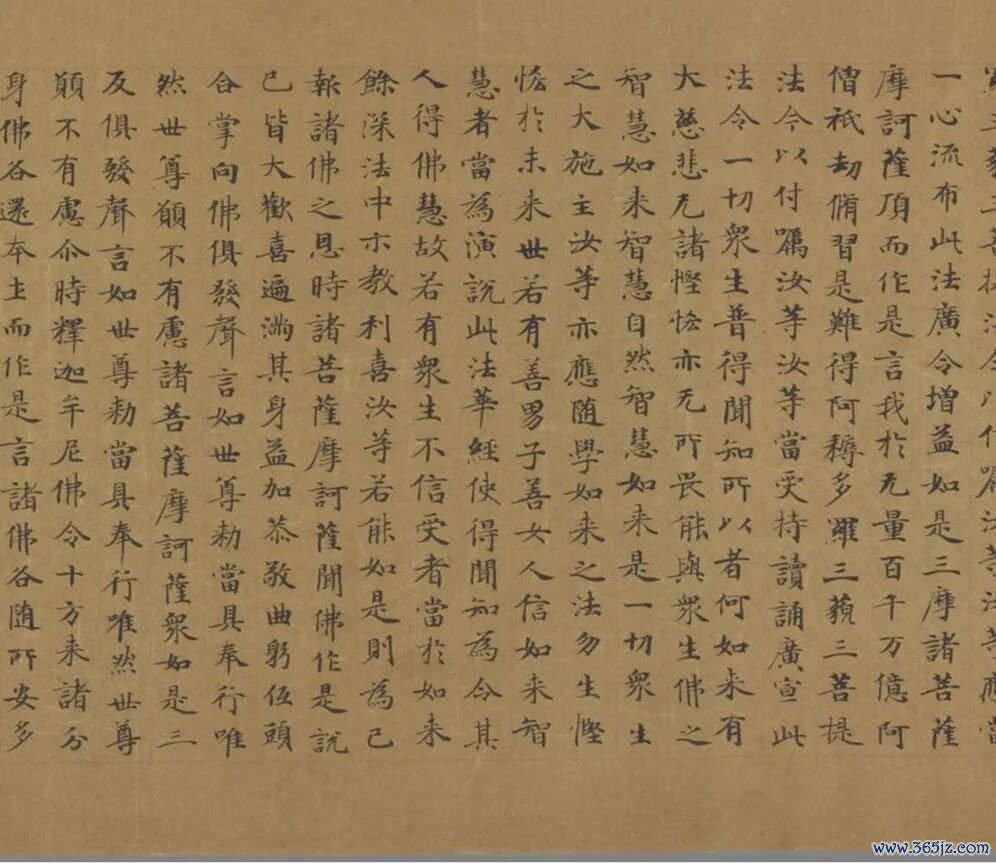 三藐三菩提法今以付囑汝等汝等應當
一心流布此法廣令增益如是三摩諸菩薩
摩訶薩頂而作是言我於无量百千万億阿
僧祇劫脩習是難得阿耨多羅三藐三菩提
法今以付囑汝等汝等當受持讀誦廣宣此
法令一切衆生普得聞知所以者何如来有
大慈悲无諸慳悋亦无所畏能與衆生佛之
智慧如来智慧自然智慧如来是一切衆生
之大施主汝等亦應随學如来之法勿生慳
悋於未来世若有善男子善女人信如来智
慧者當為演說此法華經使得聞知為令其
人得佛慧故若有衆生不信受者當於如来
餘深法中示教利喜汝等若能如是則為已
報諸佛之恩時諸菩薩摩訶薩聞佛作是說
已皆大歡喜遍滿其身益加恭敬曲躬低頭
合掌向佛俱發聲言如世尊勑當具奉行唯
然世尊願不有慮諸菩薩摩訶薩衆如是三
反俱發聲言如世尊勑當具奉行唯然世尊
願不有慮尒時釋迦牟尼佛令十方来諸分
身佛各還本土而作是言諸佛各随所安多
www.365jz.com